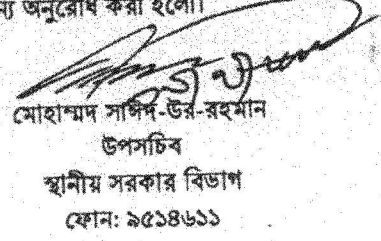 অনুরোধ করা হলো।
মোহাম্মদ সাঈদ-উর-রহমান
উপসচিব
স্থানীয় সরকার বিভাগ
ফোন: ৯৫১৪৬১১